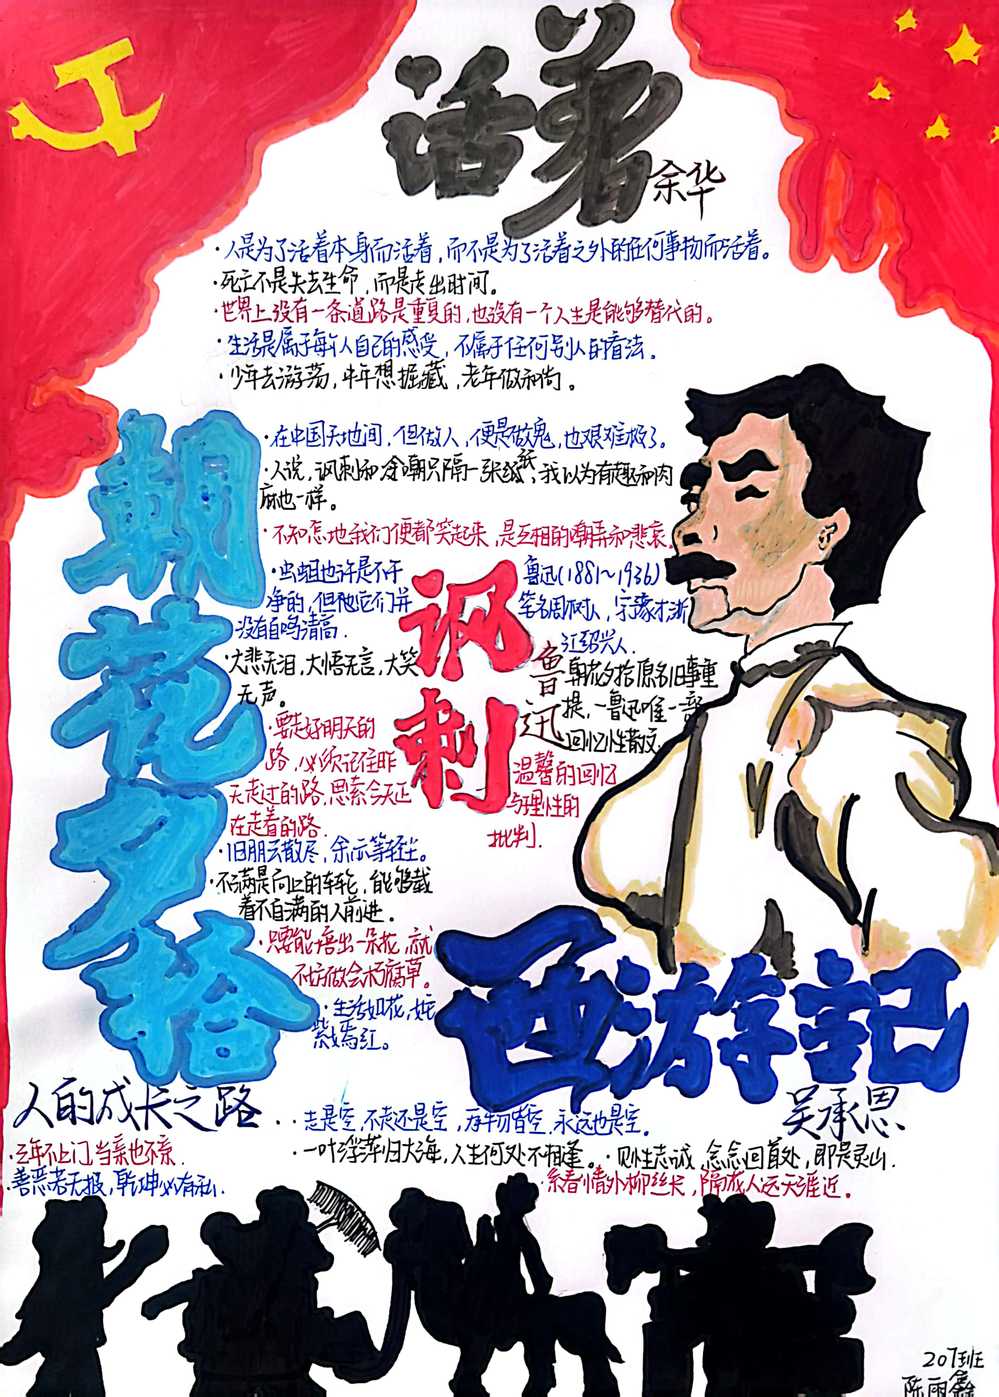 活着
余华
·人是为了活着本身而活着，而不是为了活着之外的任何事物而活着。
·死亡不是失去生命，而是走出时间。
·世界上没有一条道路是重复的，也没有一个人生是能够替代的。
·生活是属于每个人自己的感受，不属于任何别人的看法。
·少年去游荡，中年想掘藏，老年做和尚。
朝花夕拾
·在中国天地间，但做人，便是做鬼，也艰难极了。
·人说，讽刺和冷嘲只隔一张纸，我以为有趣和肉
麻也一样。
·不知怎地我们便都笑起来，是互相的嘲弄和悲哀。
·虫蛆也许是不干
净的，但他它们并
没有自鸣清高.
·大悲无泪，大悟无言，大笑
无声。
·要走好明天的
路，必须记住昨
天走过的路，思索今天正
在走着的路.
·旧朋云散尽，余亦等轻尘。
·不满是向上的车轮，能够载
着不自满的人前进。
·只要能培出一朵花，就
不妨做会朽腐草。
·生活如花，姹
紫嫣红。
讽刺
鲁迅(1881～1936)
笔名周树人，字豫才，浙
江绍兴人.
鲁迅
朝花夕拾原名旧事重
提，一鲁迅唯一一部
回忆性散文.
温馨的回忆
与理性的
批判.
西游記
吴承恩
人的成长之路
·三年不上门，当亲也不亲.
·善恶若无报，乾坤必有私.
··走是空，不走还是空，万物皆空，永远也是空。
·一叶浮萍归大海，人生何处不相逢。·见性志诚，念念回首处，即是灵山.
·系春情外柳丝长，隔花人远天涯近。
207班
陈雨鑫